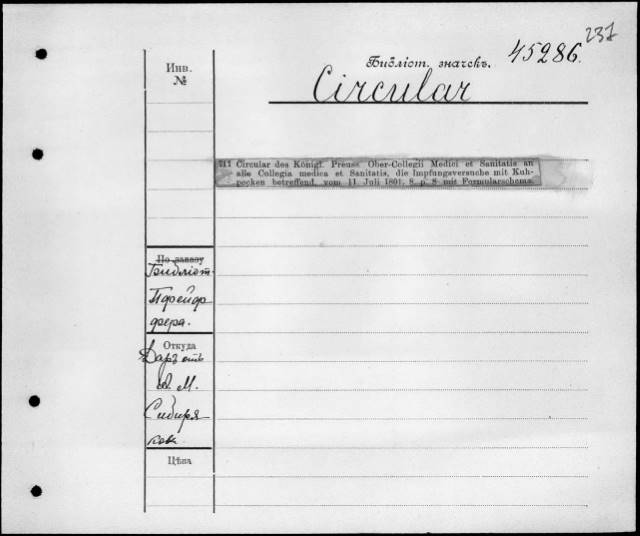 237
45286.
Инв.
№
Библіот. значекъ.
Circular
211 Circular des Königl. Preuss. Ober-Collegii Medici et Sanitatis an
alle Collegia medica et Sanitatis, die Impfungsversuche mit Kuh-
pocken betreffend, vom 11 Juli 1801. 8. p. 8. mit Formularschema.
По заказу
Библіот.
Пфейф
фера.
Откуда
Даръ отъ
М.
Сибиря
кова
Цѣна